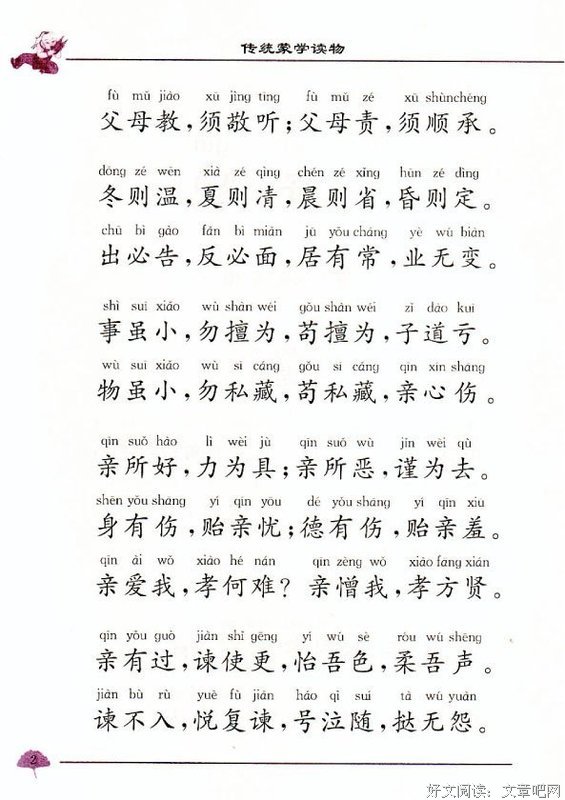 传统蒙学读物
fù mǔ jiào xū jìng tīng fù mǔ zé xū shùn chéng
父母教，须敬听；父母责，须顺承。
dōng zé wēn xià zé qìng chén zé xǐng hūn zé dìng
冬则温，夏则凊，晨则省，昏则定。
chū bì gào fǎn bì miàn jū yǒu cháng yè wú biàn
出必告，反必面，居有常，业无变。
shì suī xiǎo wù shàn wéi gǒu shàn wéi zǐ dào kuī
事虽小，勿擅为，苟擅为，子道亏。
wù suī xiǎo wù sī cáng gǒu sī cáng qīn xīn shāng
物虽小，勿私藏，苟私藏，亲心伤。
qīn suǒ hào lì wèi jù qīn suǒ wù jǐn wèi qù
亲所好，力为具；亲所恶，谨为去。
shēn yǒu shāng yí qīn yōu dé yǒu shāng yí qīn xiū
身有伤，贻亲忧；德有伤，贻亲羞。
qīn ài wǒ xiào hé nán qīn zēng wǒ xiào fāng xián
亲爱我，孝何难？亲憎我，孝方贤。
qīn yǒu guò jiàn shǐ gēng yí wú sè róu wú shēng
亲有过，谏使更，怡吾色，柔吾声。
jiàn bù rù yuè fù jiàn háo qì suí tà wú yuàn
谏不入，悦复谏，号泣随，挞无怨。
2
好文阅读：文章吧网